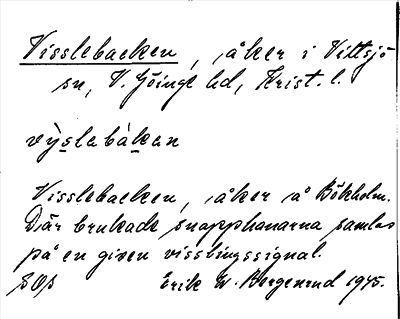 Visslebacken, åker i Vittsjö
sn, V. Göinge hd, Krist. l.
vỳslabàkan
Visslebacken, åker å Bökholm.
Där brukade snapphanarna samlas
på en given visslingssignal.
SOS Erik W. Bergenrud 1945.